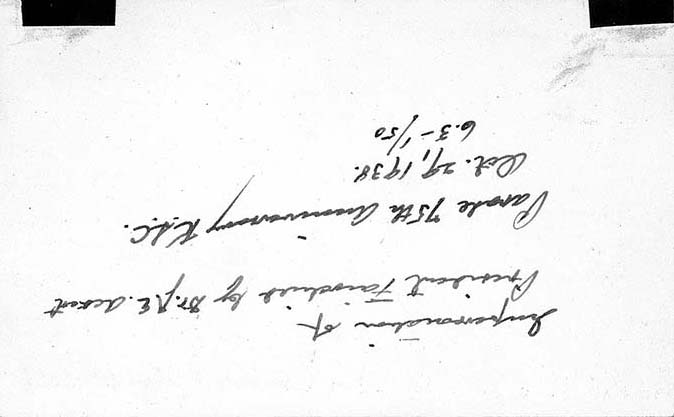 Impersonation of
President Fairchild by Dr. J. E. Ackert
Parade 75th Anniversary K.S.C.
Oct. 29, 1938.
6.3 - 1/50